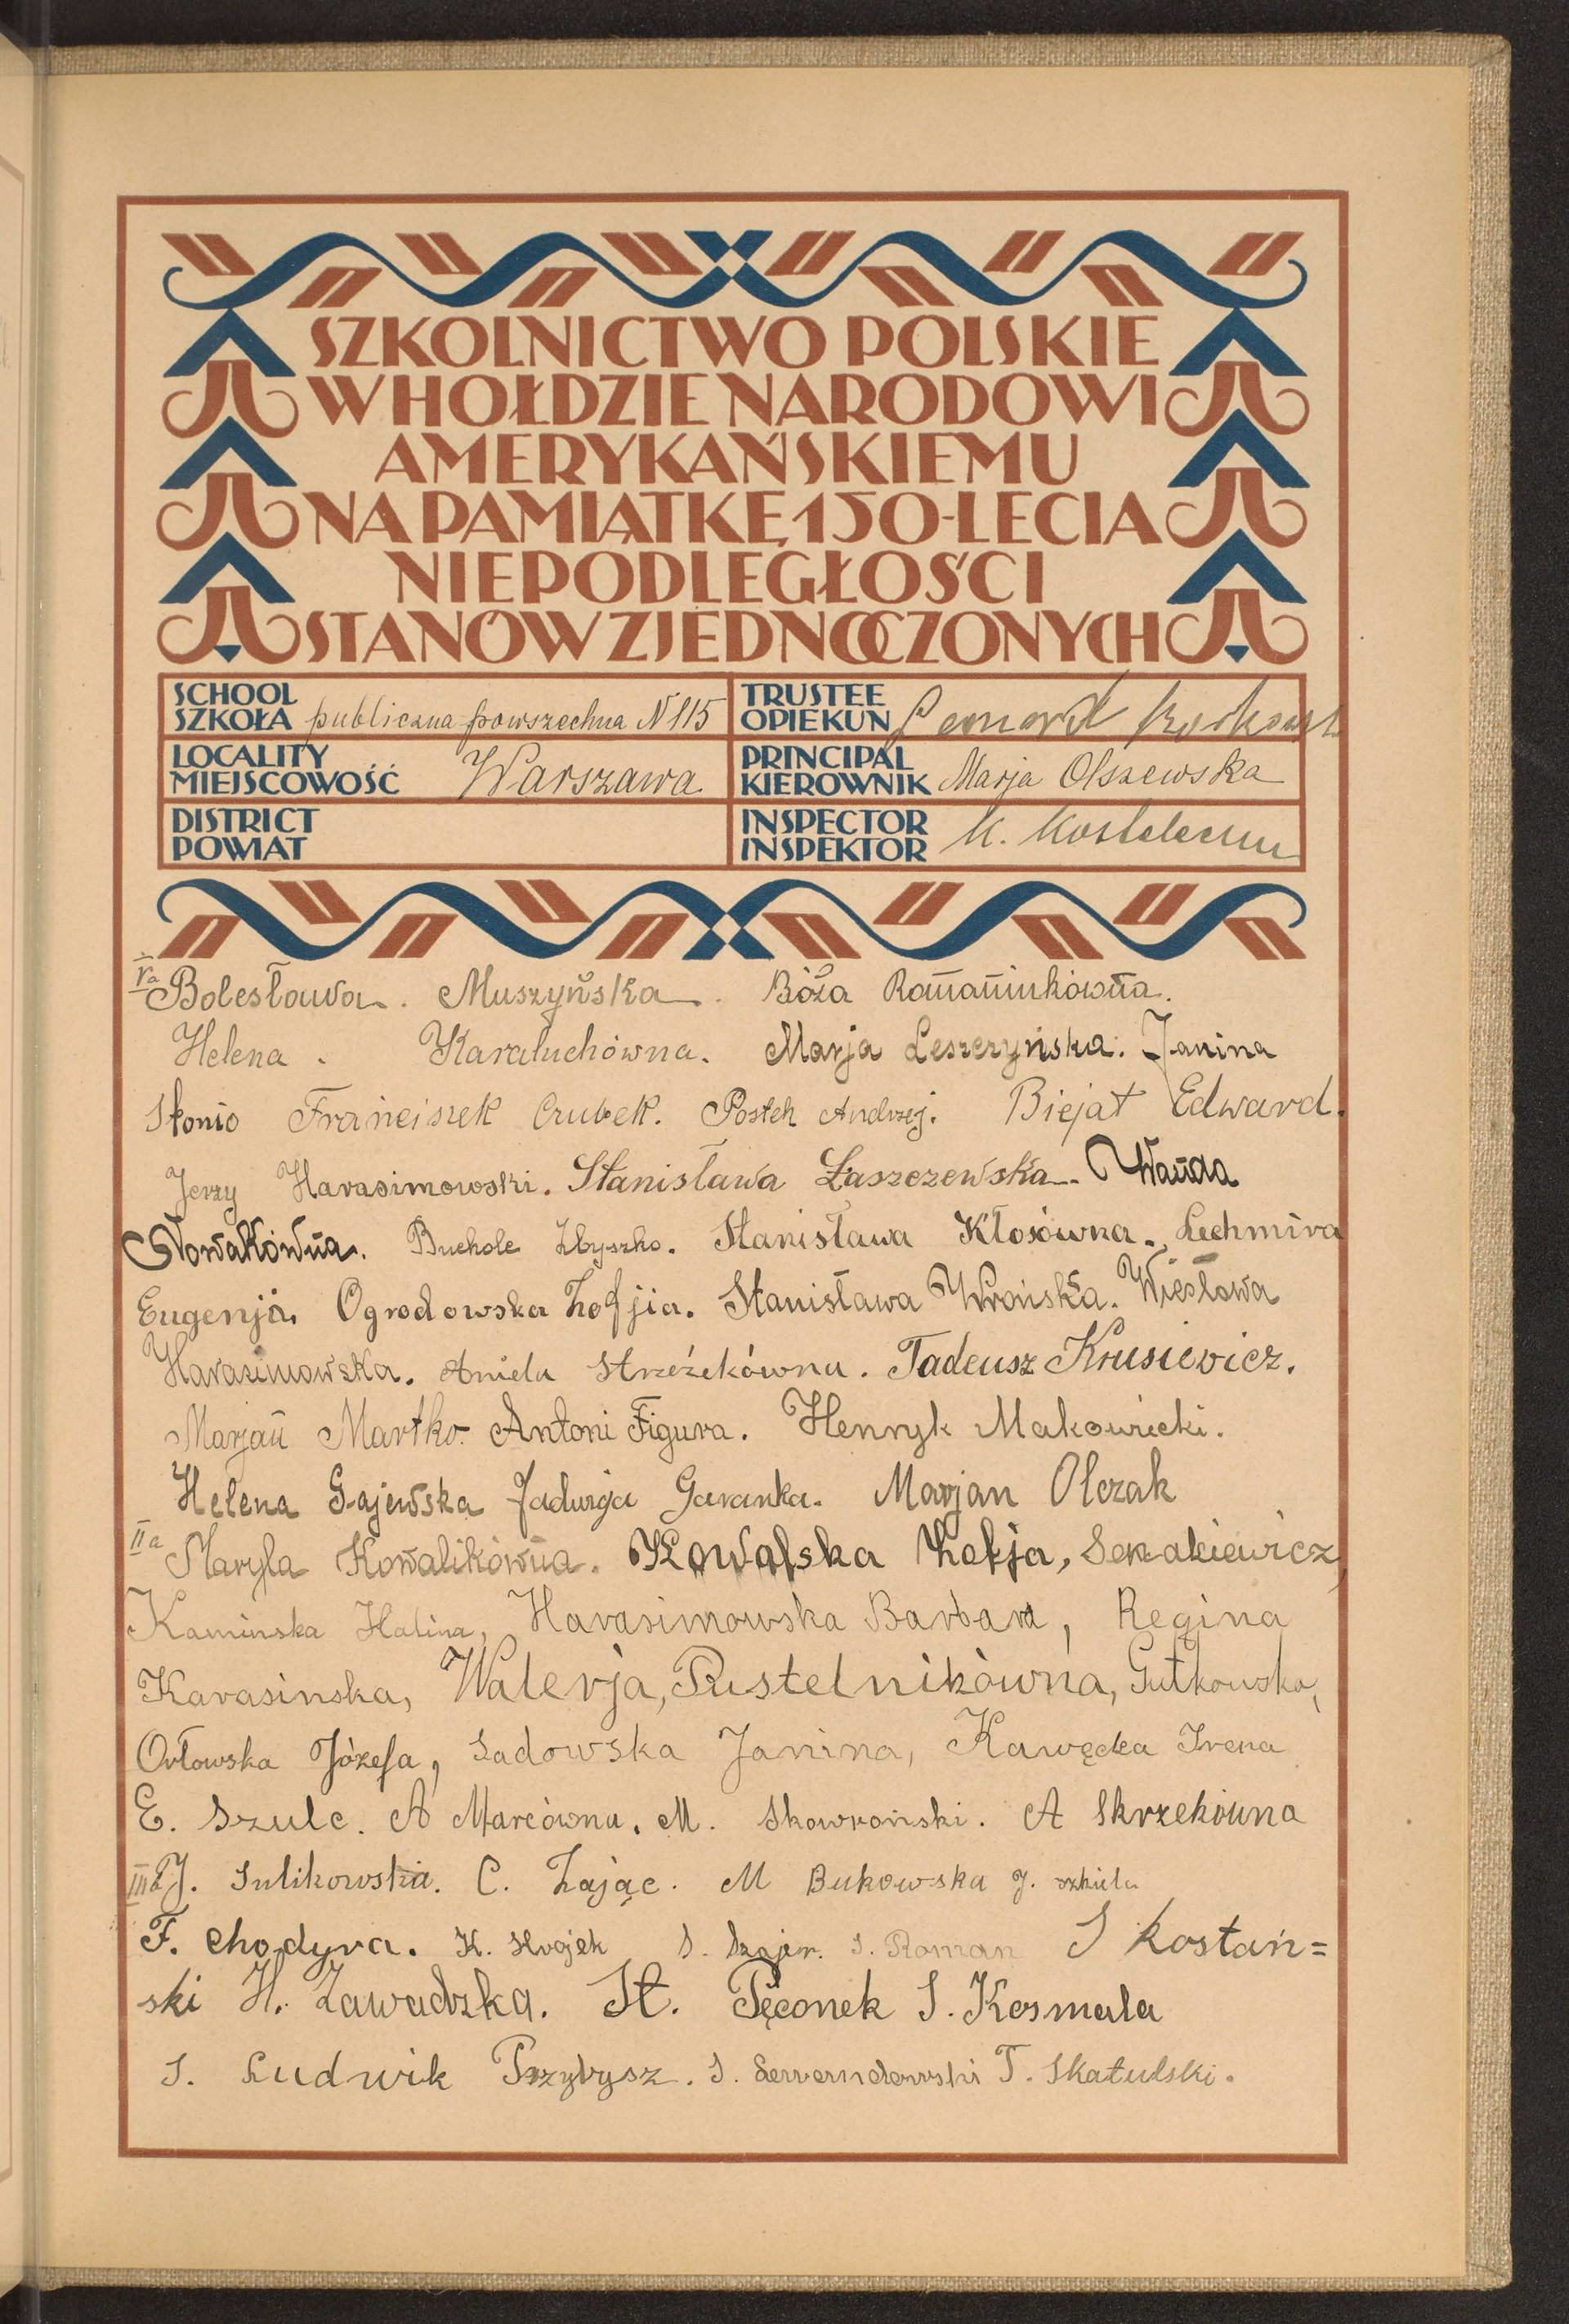 SZKOLNICTWO POLSKIE
W HOŁDZIE NARODOWI
AMERYKAŃSKIEMU
NA PAMIĄTKĘ 150-LECIA
NIEPODLEGŁOŚCI
STANÓW ZJEDNOCZONYCH
SCHOOL
SZKOŁA publiczna powszechna N 115
TRUSTEE
OPIEKUN Leonard
LOCALITY
MIEJSCOWOŚĆ Warszawa
PRINCIPAL
KIEROWNIK Marja Olszewska
DISTRICT
POWIAT
INSPECTOR
INSPEKTOR K.
Va Bolesława. Muszyńska. Róża Romaniukówna.
Helena. Karaluchówna. Marja Leszczyńska. Janina
Słonio Franciszek Czubek. Postek Andrzej. Biejat Edward.
Jerzy Harasimowski. Stanisława Łaszczewska. Wanda
Nowakówna. Buchole Zbyszko. Stanisława Kłosówna. Lechmira
Eugenja. Ogrodowska Zofjia. Stanisława Wrońska. Wiesława
Harasimowska. Aniela Strzeżekówna. Tadeusz Krusiewicz.
Marjan Martko. Antoni Figura. Henryk Makowiecki.
Helena Gajewska Jadwiga Garanka. Marjan Olczak
IIa Maryla Kowalikówna. Kowalska Zofja,
Kaminska Halina, Harasimowska Barbara, Regina
Karasinska, Walerja, Pustelnikówna, Gutkowska,
Orłowska Józefa, Sadowska Janina, Kawęcka Irena
E. Szulc. A Marcówna. M. Skowroński. A Skrzekówna
IIIa J. Sulikowska. C. Zając. M Bukowska J. szkiela
F. Chodyra. K. S. Szajer. S. Roman S Kostań=
ski H. Zawadzka. St. Pęconek S. Kosmala
S. Ludwik Przybysz. S. T. Skatulski.